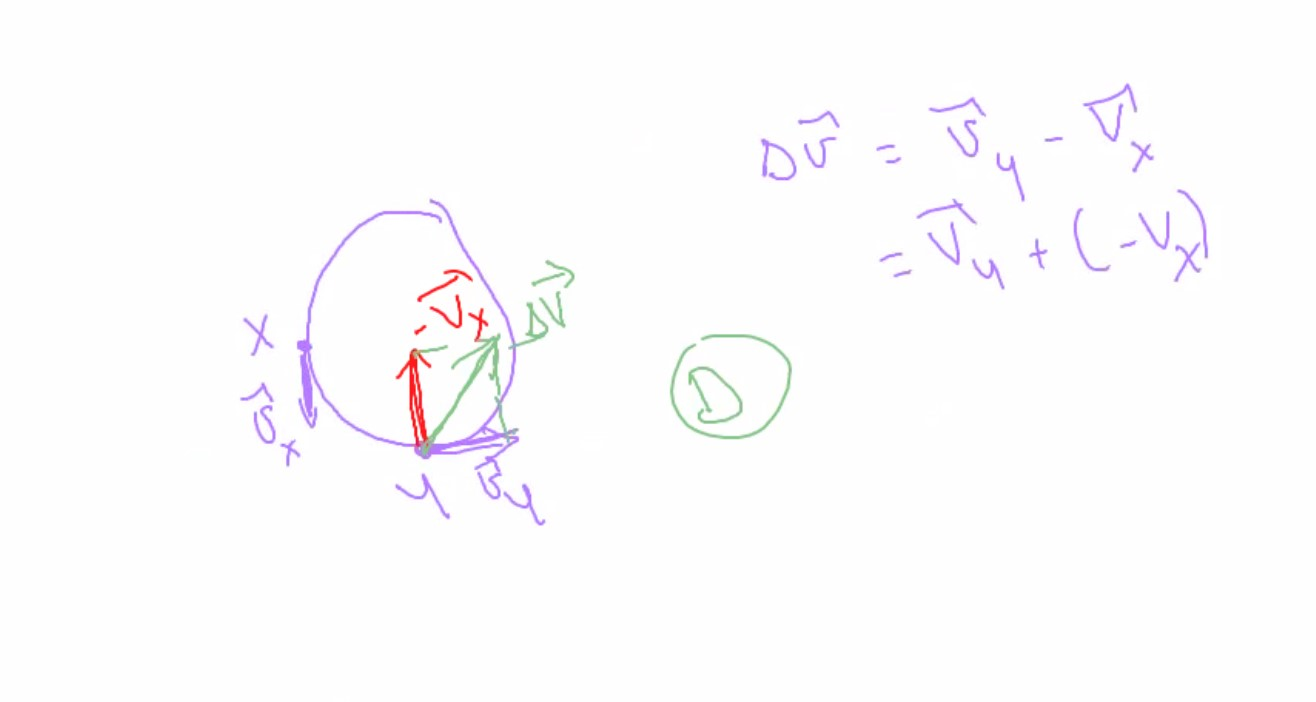 Δv⃗ = v⃗y - v⃗x
= v⃗y + (-vx)
-v⃗x
Δv⃗
x
v⃗x
D
y
v⃗y